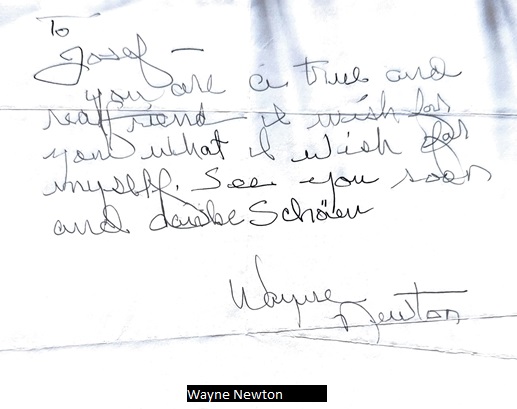 To
Josef —
you are a true and
real friend I wish for
you what I wish for
myself. See you soon
and danke Schöen
Wayne
Newton
Wayne Newton